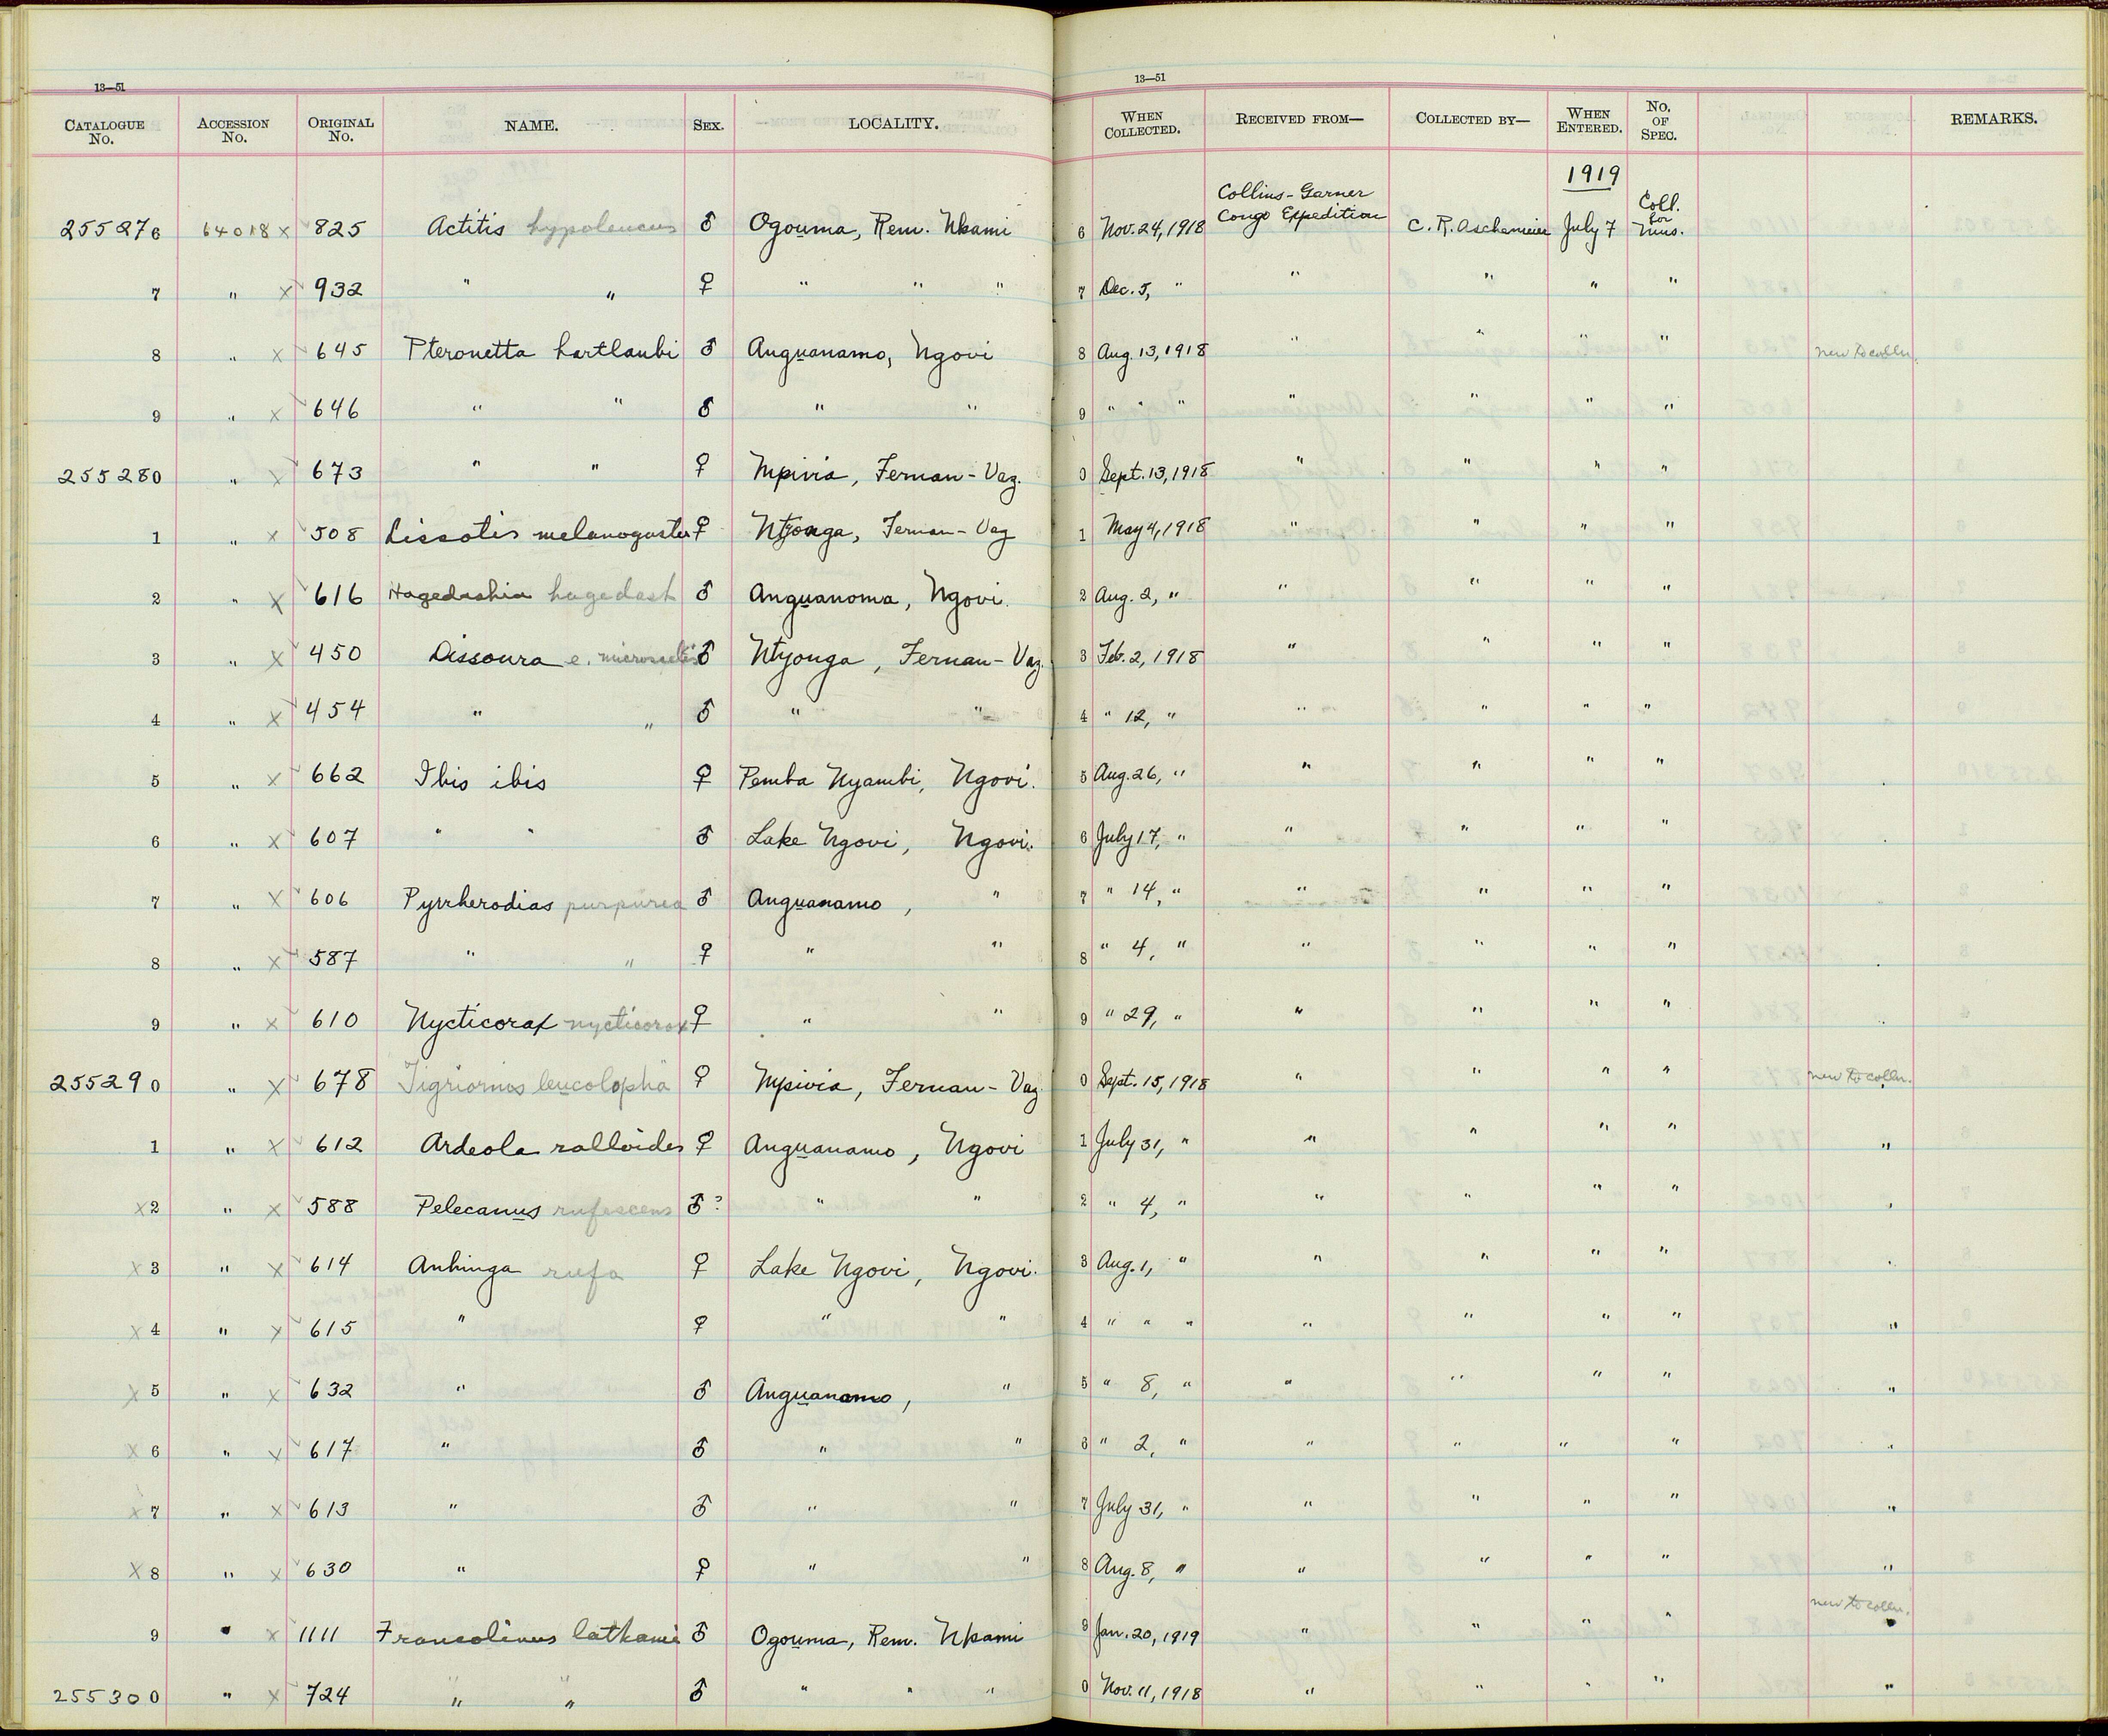 13—51
13—51
CATALOGUE No. ACCESSION No. ORIGINAL No. NAME. SEX. LOCALITY. WHEN COLLECTED. RECEIVED FROM— COLLECTED BY— WHEN ENTERED. No. OF SPEC. REMARKS.
1919
255276 64018 x 825 Actitis hypoleucus ♂ Ogouma, Rem. Nkami 6 Nov. 24, 1918 Collins-Garner Congo Expedition C. R. Aschemeier July 7 Coll. for Mus.
7 " x 932 " " ♀ " " " 7 Dec. 5, " " " " "
8 " x 645 Pteronetta hartlaubi ♂ Anguanamo, Ngovi 8 Aug. 13, 1918 " " " " new to colln.
9 " x 646 " " ♂ " " 9 " " " " " " "
255280 " x 673 " " ♀ Mpivia, Fernan-Vaz. 0 Sept. 13, 1918 " " " "
1 " x 508 Lissotis melanogaster ♀ Ntyonga, Fernan-Vaz 1 May 4, 1918 " " " "
2 " x 616 Hagedashia hagedash ♂ Anguanoma, Ngovi. 2 Aug. 2, " " " " "
3 " x 450 Dissoura e. microscelis ♂ Ntyonga, Fernan-Vaz. 3 Feb. 2, 1918 " " " "
4 " x 454 " " ♂ " " 4 " 12, " " " " "
5 " x 662 Ibis ibis ♀ Pemba Nyambi, Ngovi. 5 Aug. 26, " " " " "
6 " x 607 " " ♂ Lake Ngovi, Ngovi. 6 July 17, " " " " "
7 " x 606 Pyrrherodias purpurea ♂ Anguanamo, " 7 " 14, " " " " "
8 " x 587 " " ♀ " " 8 " 4, " " " " "
9 " x 610 Nycticorax nycticorax ♀ " " 9 " 29, " " " " "
255290 " x 678 Tigriornos leucolopha ♀ Mpivia, Fernan-Vaz 0 Sept. 15, 1918 " " " " new to colln.
1 " x 612 Ardeola ralloides ♀ Anguanamo, Ngovi 1 July 31, " " " " " "
x 2 " x 588 Pelecanus rufescens ♂? " " 2 " 4, " " " " " "
x 3 " x 614 Anhinga rufa ♀ Lake Ngovi, Ngovi. 3 Aug. 1, " " " " " "
x 4 " x 615 " ♀ " " 4 " " " " " " " "
x 5 " x 632 " ♂ Anguanamo, " 5 " 8, " " " " " "
x 6 " x 617 " ♂ " " 6 " 2, " " " " " "
x 7 " x 613 " ♂ " " 7 July 31, " " " " " "
x 8 " x 630 " ♀ " " 8 Aug. 8, " " " " " "
9 " x 1111 Francolinus lathami ♂ Ogouma, Rem. Nkami 9 Jan. 20, 1919 " " " " new to colln. "
255300 " x 724 " " ♂ " " " 0 Nov. 11, 1918 " " " " "